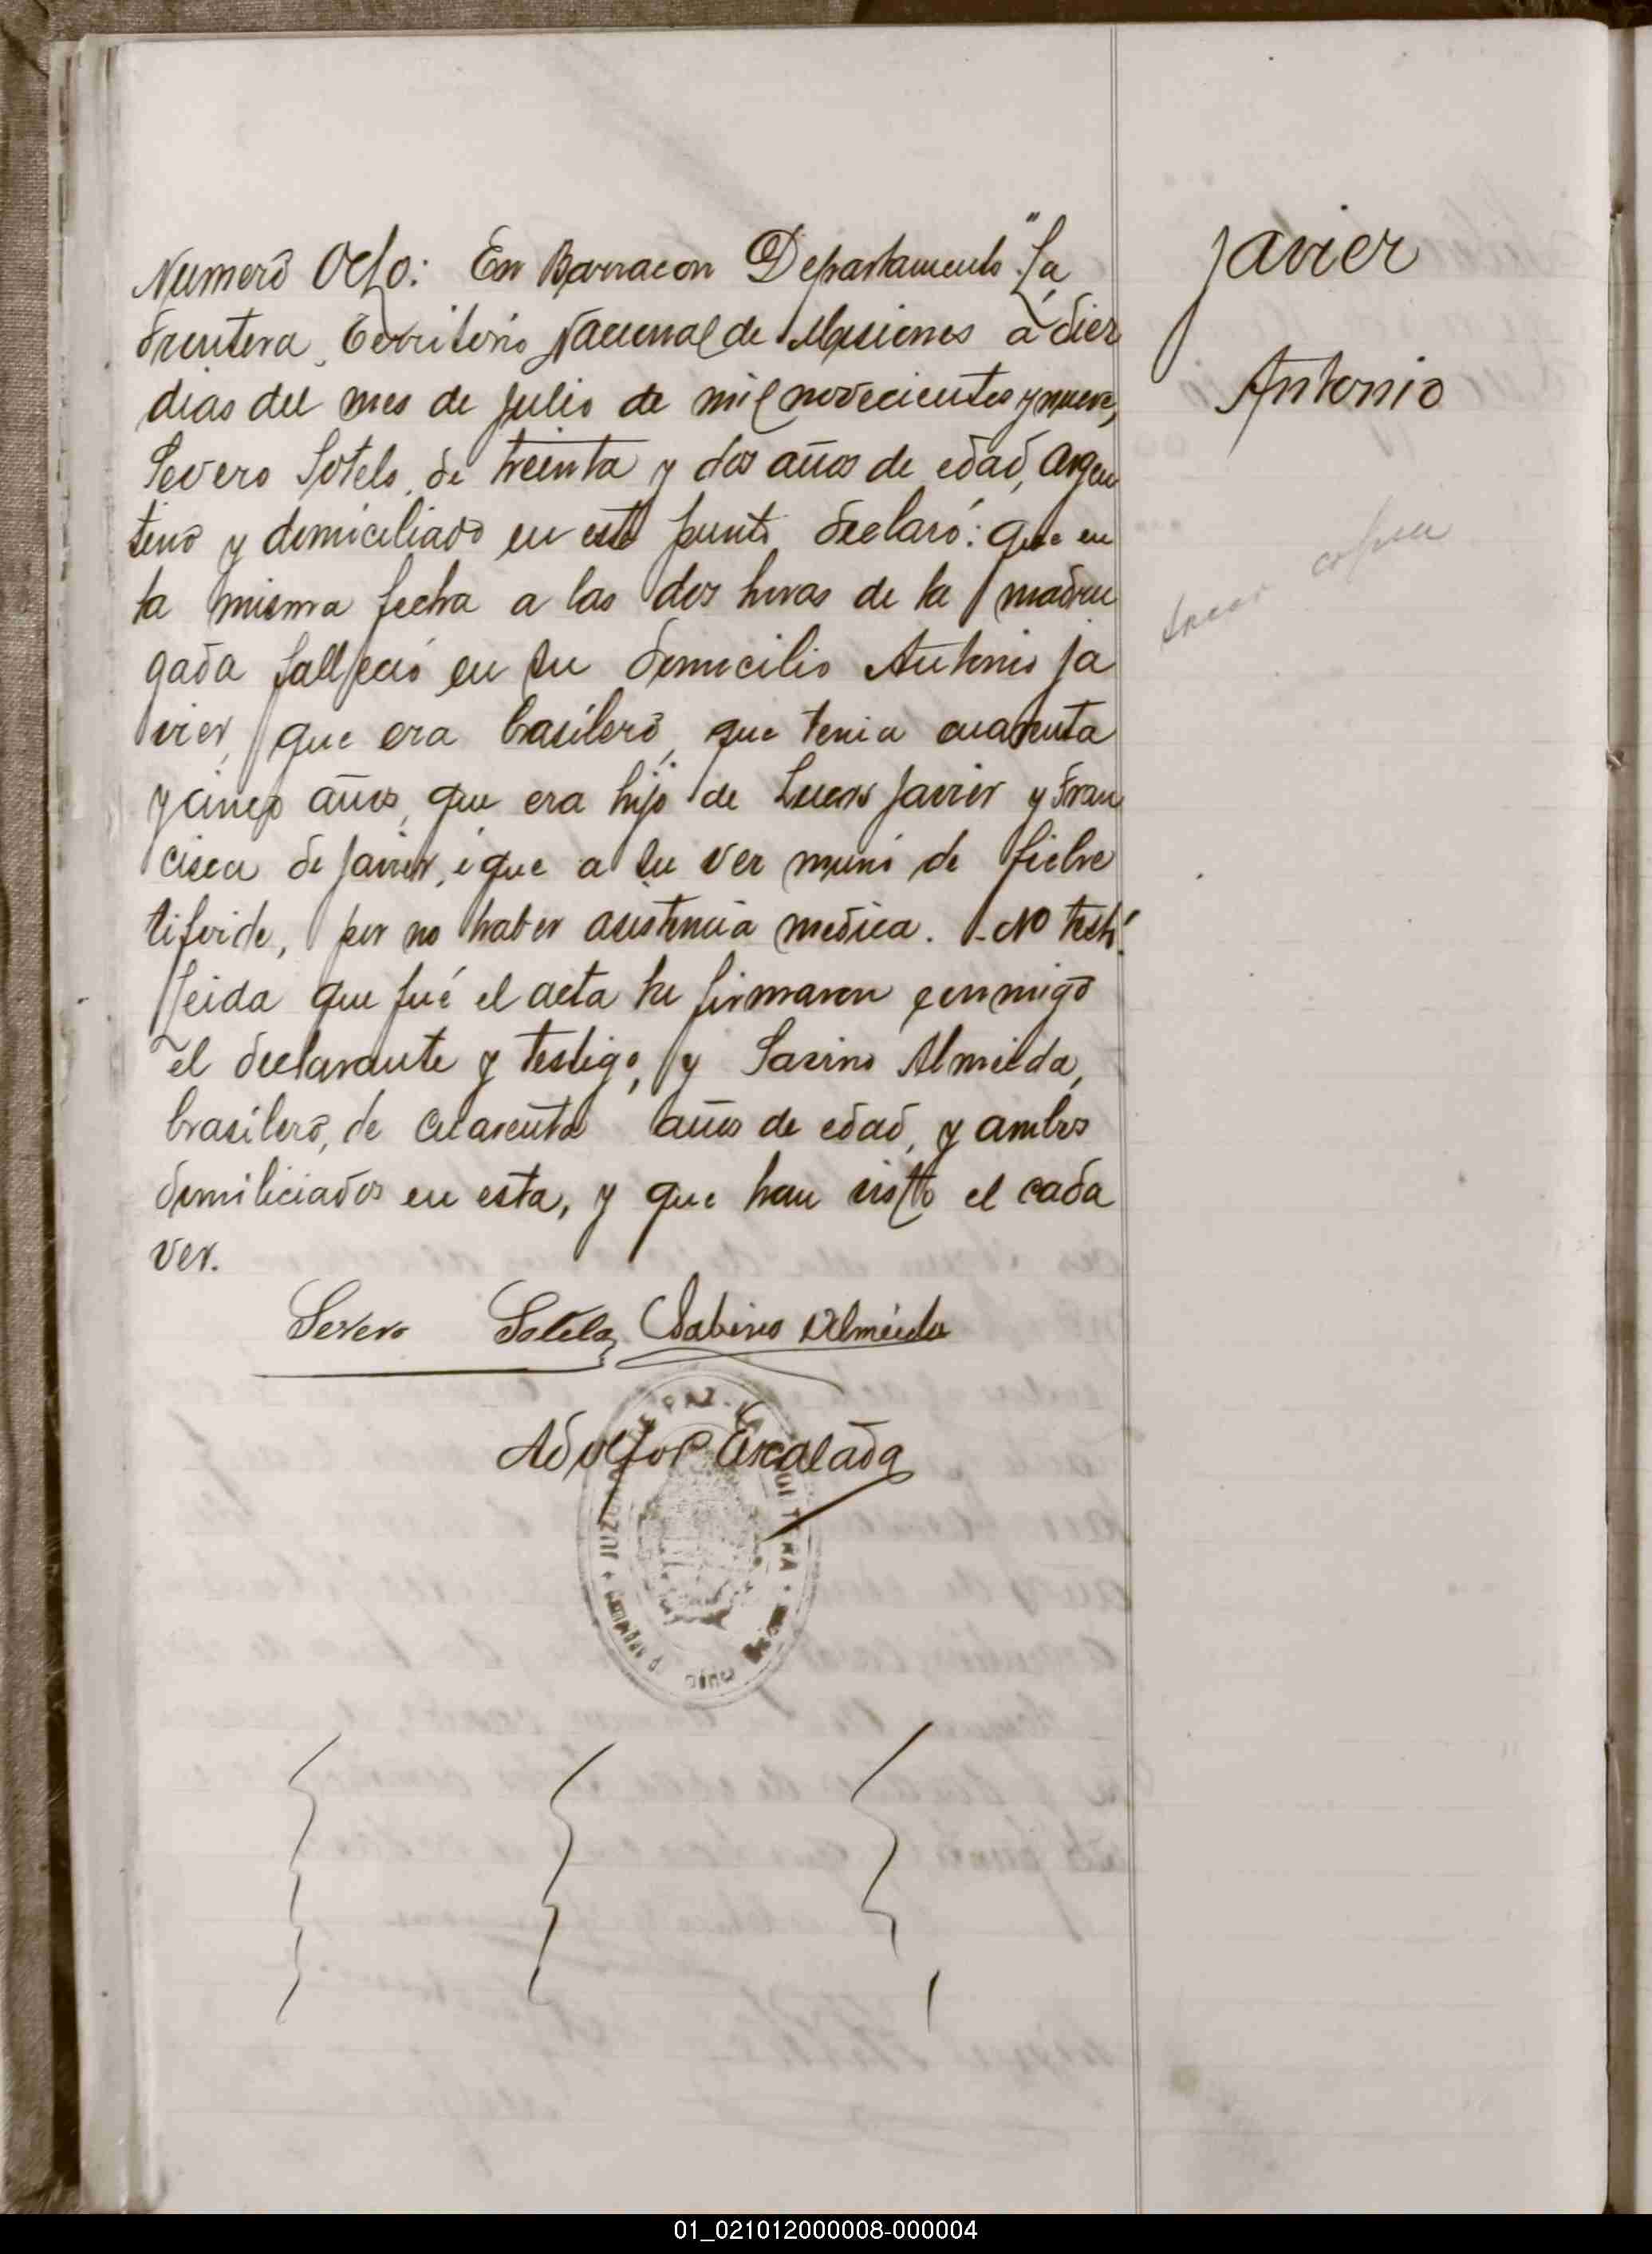 Javier
Antonio
sacar copia
Numero Ocho: En Barracon Departamento "La
Frontera, Territorio Nacional de Misiones a diez
dias del mes de Julio de mil novecientos y nueve,
Severo Sotelo, de treinta y dos años de edad, argen
tino y domiciliado en este punto declaró: que en
la misma fecha a las dos horas de la madru
gada falleció en su domicilio Antonio Ja
vier, que era brasilero, que tenia cuarenta
y cinco años, que era hijo de Lucas Javier y Fran
cisca de Javier, i que a su ver murió de fiebre
tifoide, por no haber asistencia medica. - No testó.
Leida que fué el acta la firmaron conmigo
el declarante y testigo, y Savino Almeida,
brasilero, de cuarenta años de edad, y ambos
domiliciados en esta, y que han visto el cada
ver.
Severo Sotelo Sabino Almeida
Adolfo P Escalada
JUZGADO PAZ FRONTERA
01_021012000008-000004